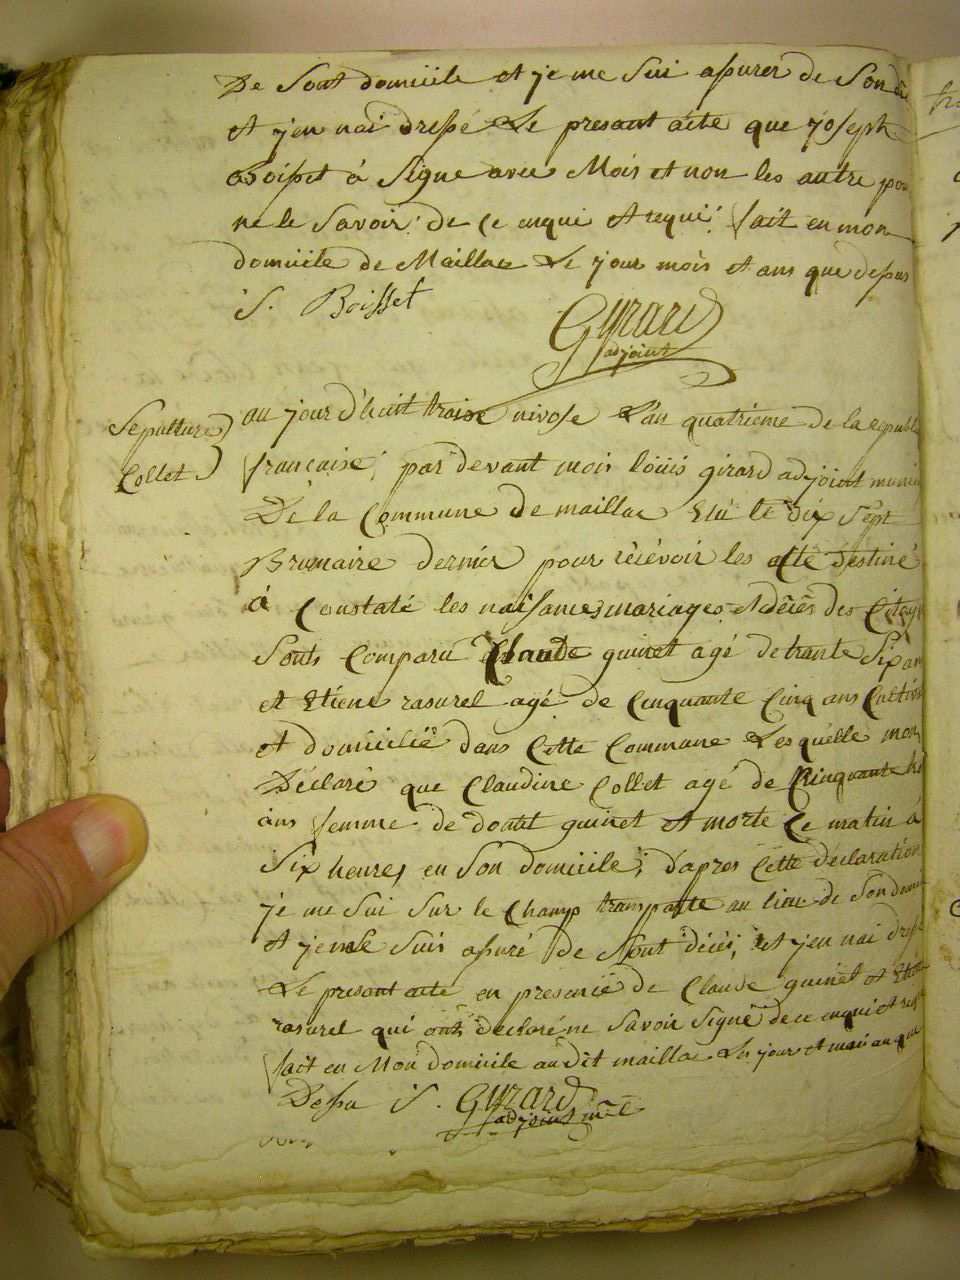 De Sont domiiile et je me Sui assurer de Son
et j'en nai dressé Le presant acte que joseph
Boisset à Signe avec Mois et non les autre pou
ne le Savoir: de ce enqui et requi. fait en mon
domiiile de Maillac Le jour mois et ans que depus
S. Boisset
Gyrard
adjoint
Sepulture
Collet
au jour d'huit traise nivose L'an quatrieme de la republi
francaise, par devant mois loüis girard adjoint munici
De la Commune de maillac Elü le dix Sept
Brumaire dernier pour récévoir les acte déstiné
à Constaté les naisances mariages et décès des Citoy
Sonts Comparu Claude guinet agé de trante Six an
et Etiene rasurel agé de Cinquante Cinq ans Cultiv
et domicilié dans Cette Commune Lesquélle mon
Déclaré que Claudine Collet agé de Cinquante h
ans femme de doutit guinet et morte Ce matin à
Six heures en Son domiiile, d'apres Cette declaration
je me Sui Sur le Champ transporte au lieu de Son domi
et je me Suis assuré de Sont décés, et j'en nai dressé
Le presant acte en presence de Claude guinet et Eti
rasurel qui ont declaré ne Savoir Signé de ce enqui et req
fait en Mon domiiile audit maillac Les jour et mois an que
Dessu S. Gyrard
adjoint